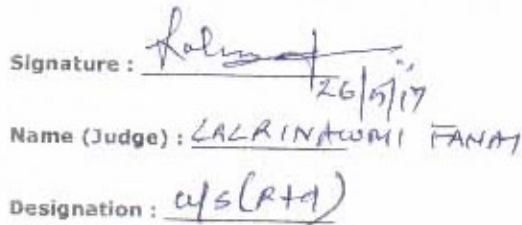 Signature :
26/5/17
Name (Judge) : LALRINAWMI FANAI
Designation : u/s (Rtd)